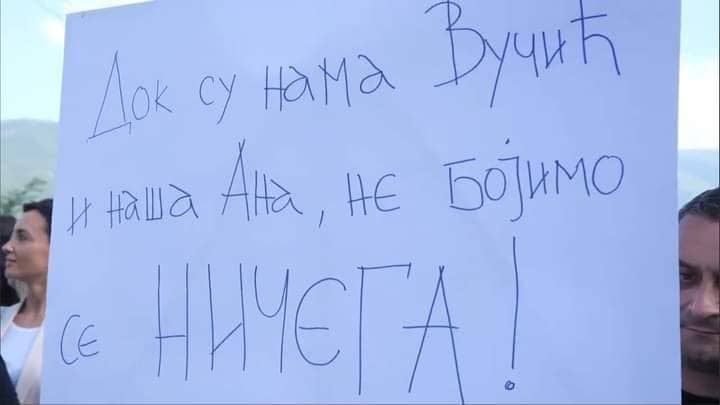 Док су нама Вучић
и наша Ана, не бојимо
се НИЧЕГА!